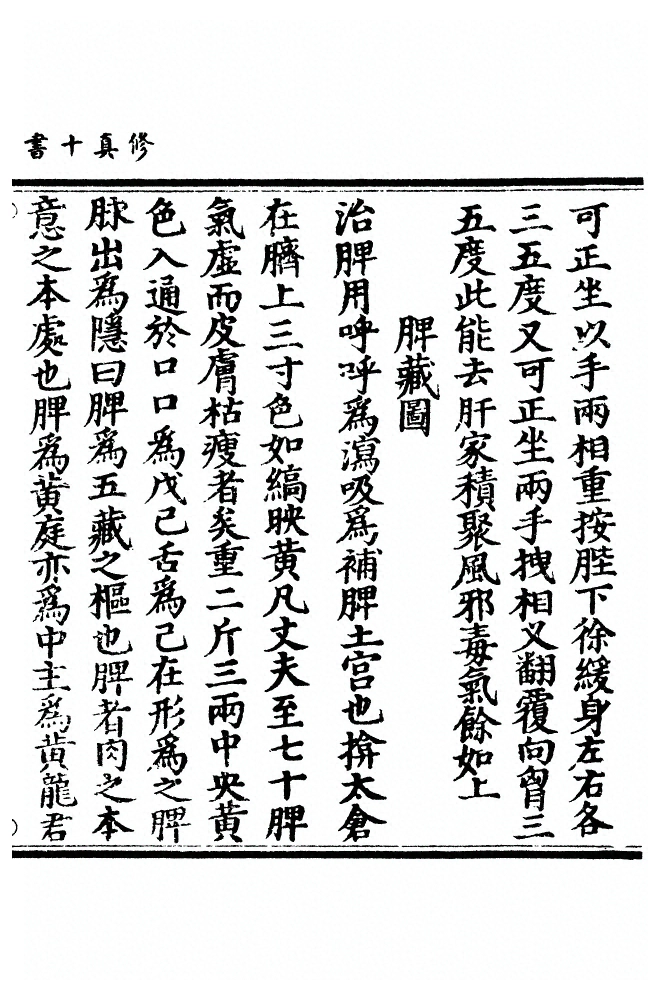 修真十書
可正坐以手兩相重按䏶下徐緩身左右各
三五度又可正坐兩手拽相义翻覆向胷三
五度此能去肝家積聚風邪毒氣餘如上
脾藏圖
治脾用呼呼爲瀉吸爲補脾土宫也揜太倉
在臍上三寸色如縞映黄凡丈夫至七十脾
氣虚而皮膚枯瘦者矣重二斤三兩中央黄
色入通於口口爲戊己舌爲己在形爲之脾
脉出爲隱曰脾爲五藏之樞也脾者肉之本
意之本處也脾爲黄庭亦爲中主爲黄龍君